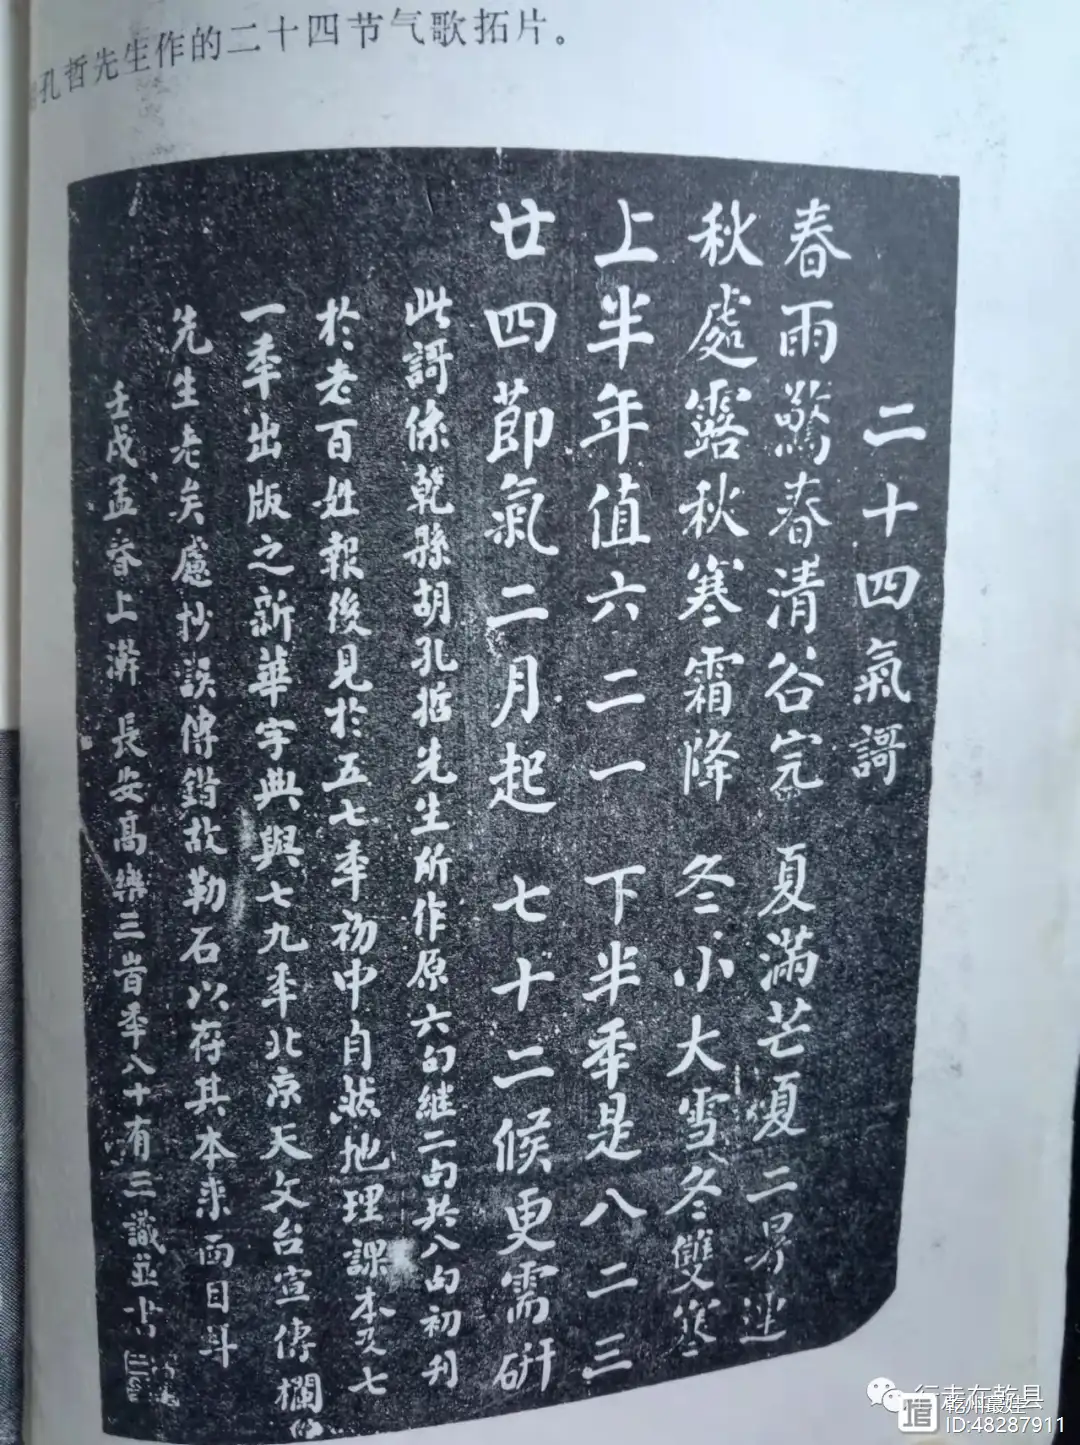 孔哲先生作的二十四节气歌拓片。
二十四氣謌
春雨驚春清谷完 夏滿芒夏二暑連
秋處露秋寒霜降 冬小大雪冬雙寒
上半年值六二一 下半季是八二三
廿四節氣二月起 七十二候更需研
此謌係乾縣胡孔哲先生所作原六句继二句共八句初刊
於老百姓報後見於五七季初中自然地理課本又七
一季出版之新華字典與七九年北京天文台宣傳欄
先生老矣慮抄誤傳錯故勒石以存其本来面目耳
壬戌孟春上澣 長安高樂三旹季八十有三識並书
行走在乾县
乾州蕞娃
ID:48287911